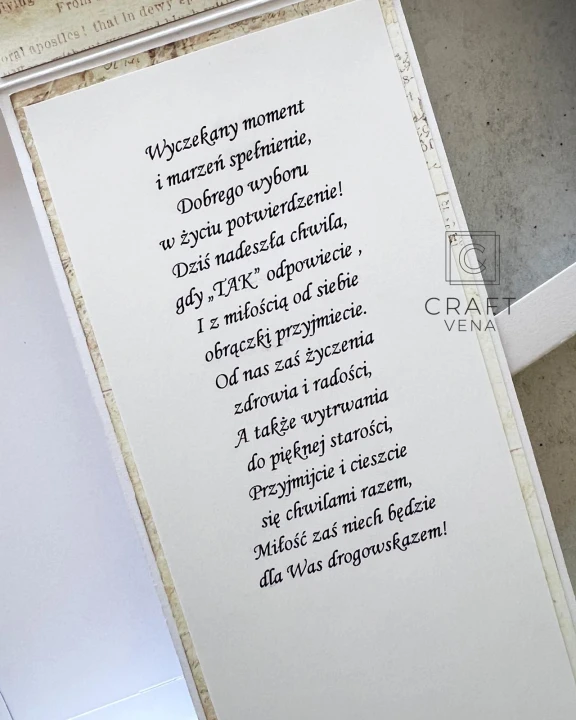 From
oral apostles! that in dewy
Wyczekany moment
i marzeń spełnienie,
Dobrego wyboru
w życiu potwierdzenie!
Dziś nadeszła chwila,
gdy „TAK” odpowiecie ,
I z miłością od siebie
obrączki przyjmiecie.
Od nas zaś życzenia
zdrowia i radości,
A także wytrwania
do pięknej starości,
Przyjmijcie i cieszcie
się chwilami razem,
Miłość zaś niech będzie
dla Was drogowskazem!
C
CRAFT
VENA